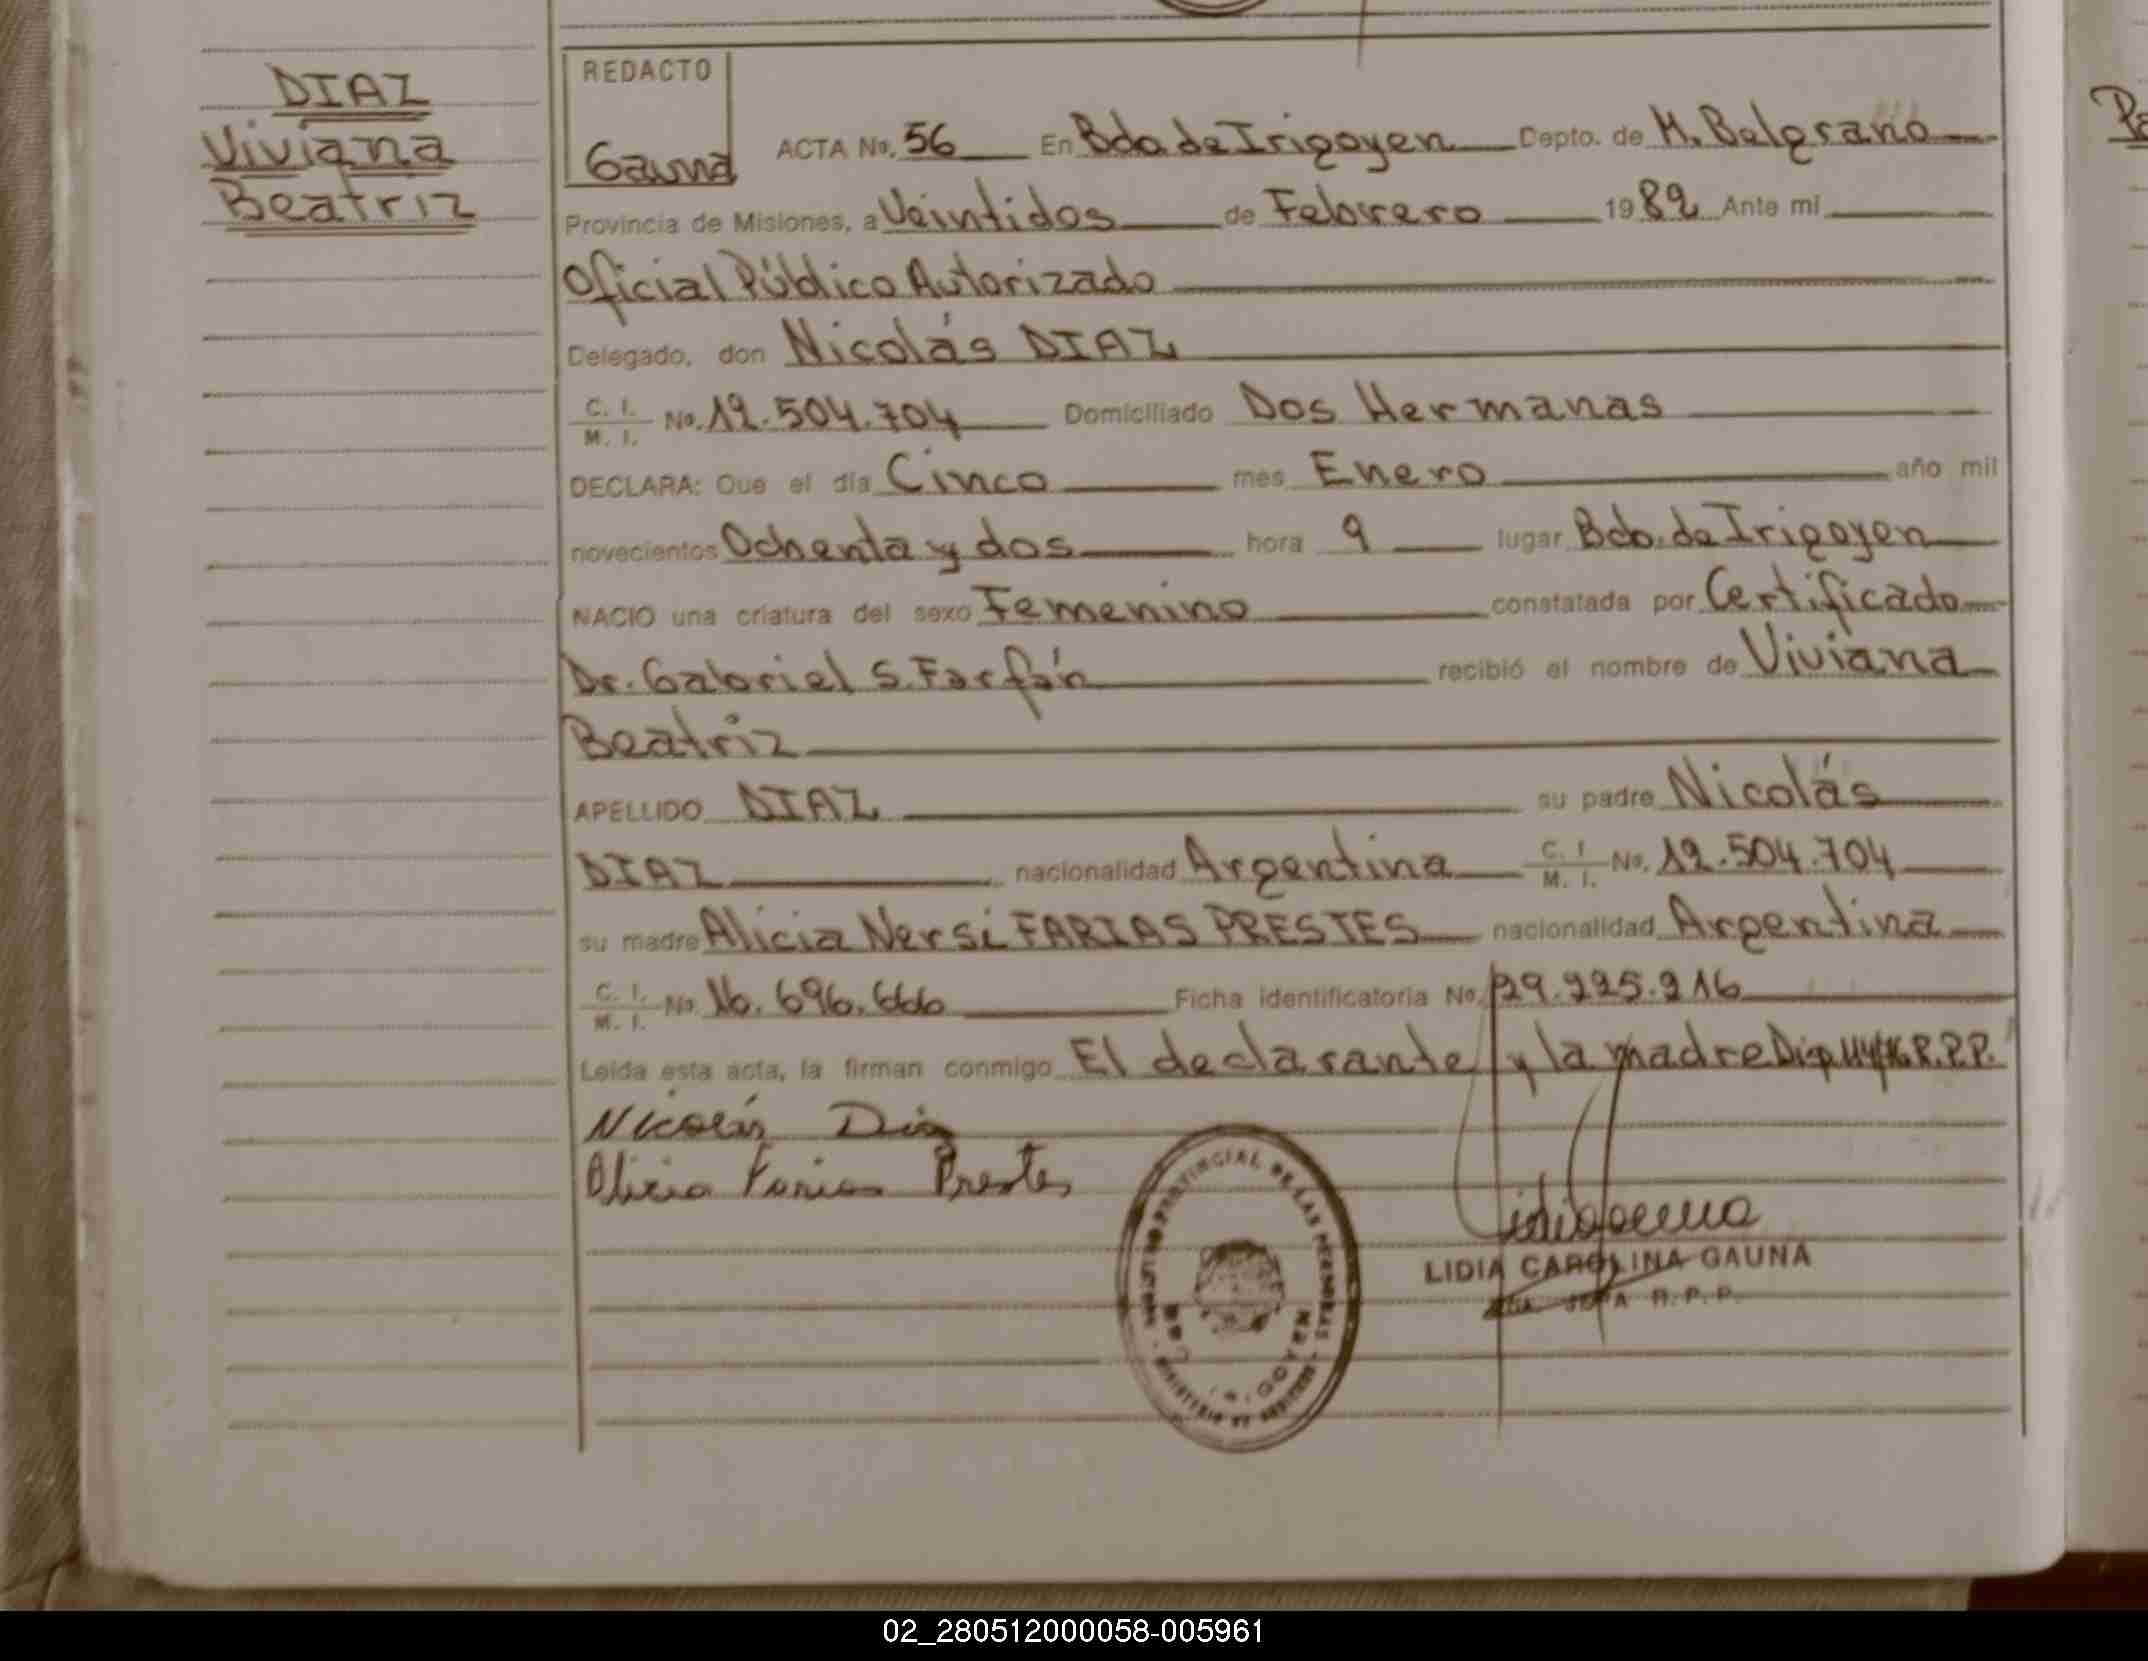 DIAZ
Viviana
Beatriz
REDACTO
Gauna
ACTA No. 56 En Bdo de Irigoyen Depto. de M. Belgrano
Provincia de Misiones, a Veintidos de Febrero 1982 Ante mi
Oficial Público Autorizado
Delegado, don Nicolás DIAZ
C. I. / M. I. No. 12.504.704 Domiciliado Dos Hermanas
DECLARA: Que el dia Cinco mes Enero año mil
novecientos Ochenta y dos hora 9 lugar Bdo. de Irigoyen
NACIO una criatura del sexo Femenino constatada por Certificado
Dr. Gabriel S. Farfán recibió el nombre de Viviana
Beatriz
APELLIDO DIAZ su padre Nicolás
DIAZ nacionalidad Argentina C. I. / M. I. No. 12.504.704
su madre Alicia Nersi FARIAS PRESTES nacionalidad Argentina
C. I. / M. I. No. 16.696.666 Ficha identificatoria No. 29.225.216
Leida esta acta, la firman conmigo El declarante y la madre Disp. R.P.P.
Nicolás Diaz
Alicia Farias Prestes
PROVINCIAL DE LAS PERSONAS
LIDIA CAROLINA GAUNA
JEFA R. P. P.
02_280512000058-005961